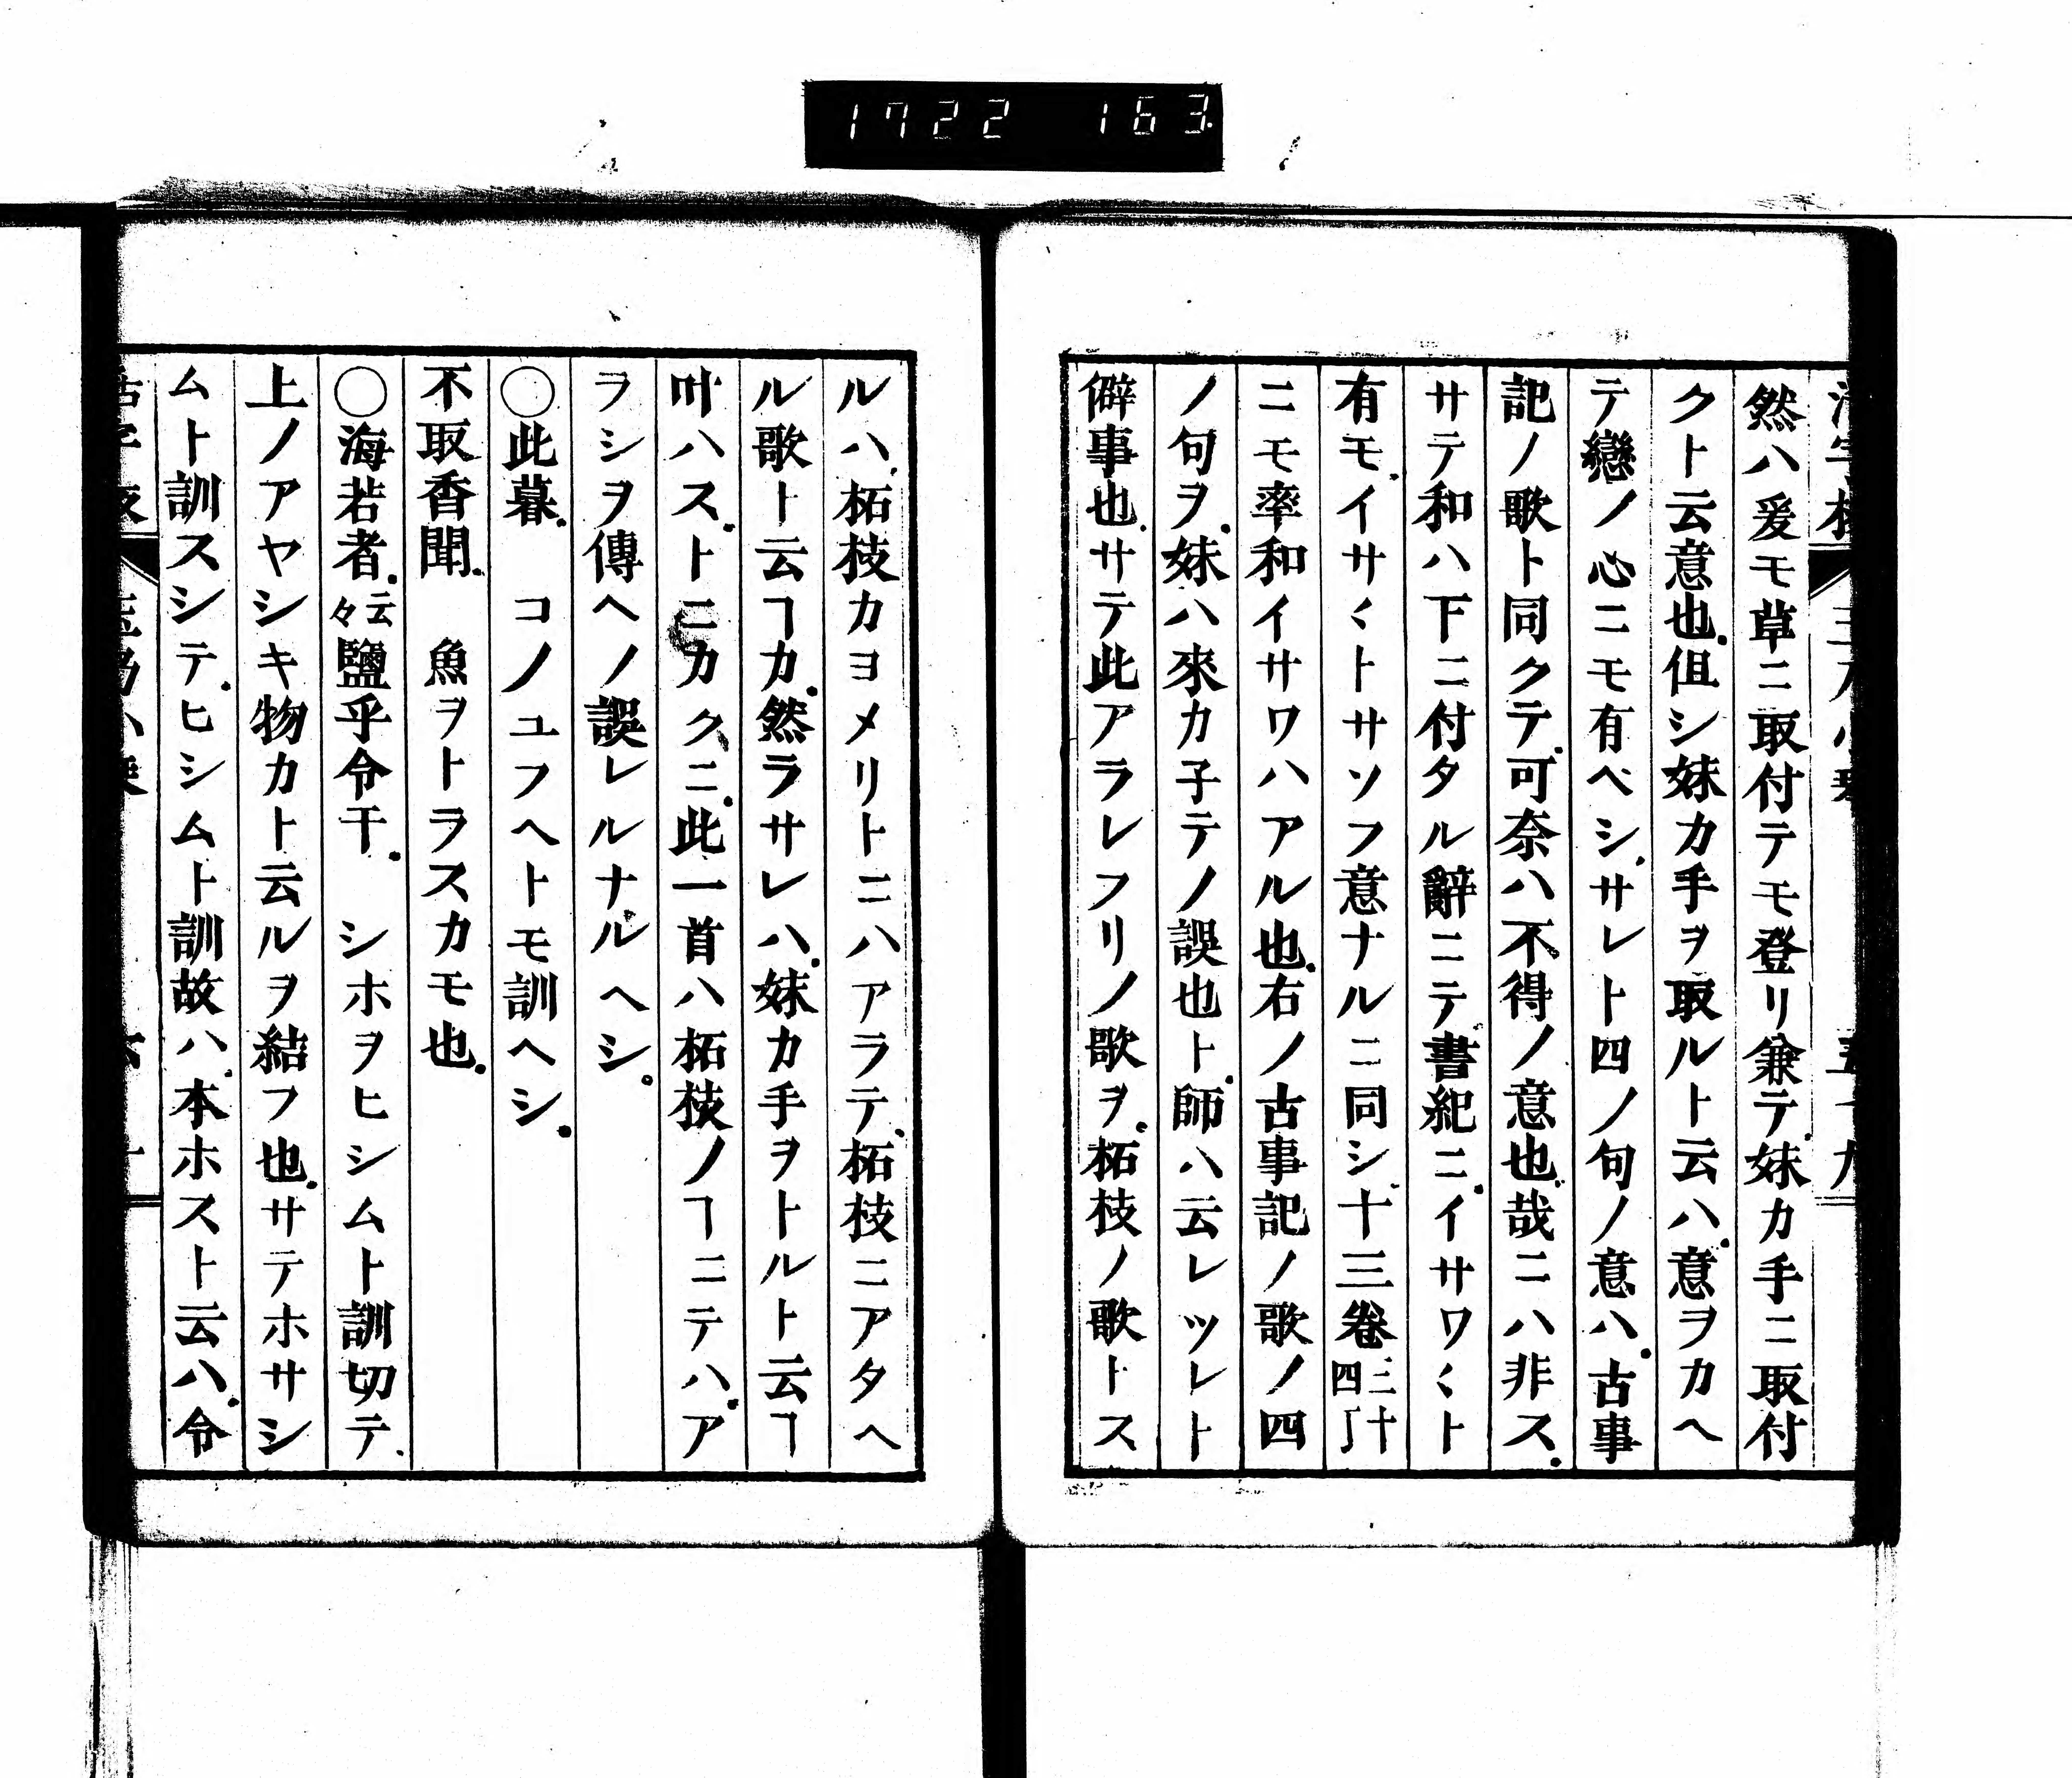 1722 163
然ハ爰モ草ニ取付テモ登リ兼テ妹カ手ニ取付
クト云意也但シ妹カ手ヲ取ルト云ハ意ヲカヘ
テ戀ノ心ニモ有ベシサレト四ノ句ノ意ハ古事
記ノ歌ト同クテ可奈ハ不得ノ意也哉ニハ非ス
サテ和ハ下ニ付タル辭ニテ書紀ニイサワ〱ト
有モイサ〱トサソフ意ナルニ同シ十三卷三十四丁
ニモ率和イサワハアル也右ノ古事記ノ歌ノ四
ノ句ヲ妹ハ來カ子テノ誤也ト師ハ云レツレト
僻事也サテ此アラレフリノ歌ヲ柘枝ノ歌トス
ルハ柘枝カヨメリトニハアラテ柘枝ニアタヘ
ル歌ト云ヿカ然ラサレハ妹カ手ヲトルト云ヿ
叶ハストニカクニ此一首ハ柘枝ノヿニテハア
ラシヲ傳ヘノ誤レルナルヘシ
○此暮　コノユフヘトモ訓ヘシ
不取香聞　魚ヲトラスカモ也
○海若者云々鹽乎令干　シホヲヒシムト訓切テ
上ノアヤシキ物カト云ルヲ結フ也サテホサシ
ムト訓スシテヒシムト訓故ハ本ホスト云ハ令